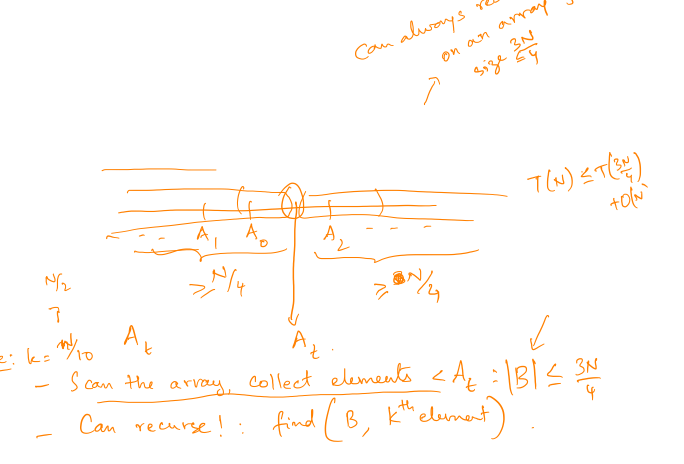 Can always
on an array
size ≤ 3N/4
T(N) ≤ T(3N/4)
+O(N)
- - - A₁ A₀ A₂ - - -
≥ N/4 ≥ N/4
N/2
?
: k = N/10 A_t A_t .
- Scan the array, collect elements < A_t : |B| ≤ 3N/4
- Can recurse! : find (B, kᵗʰ element) .